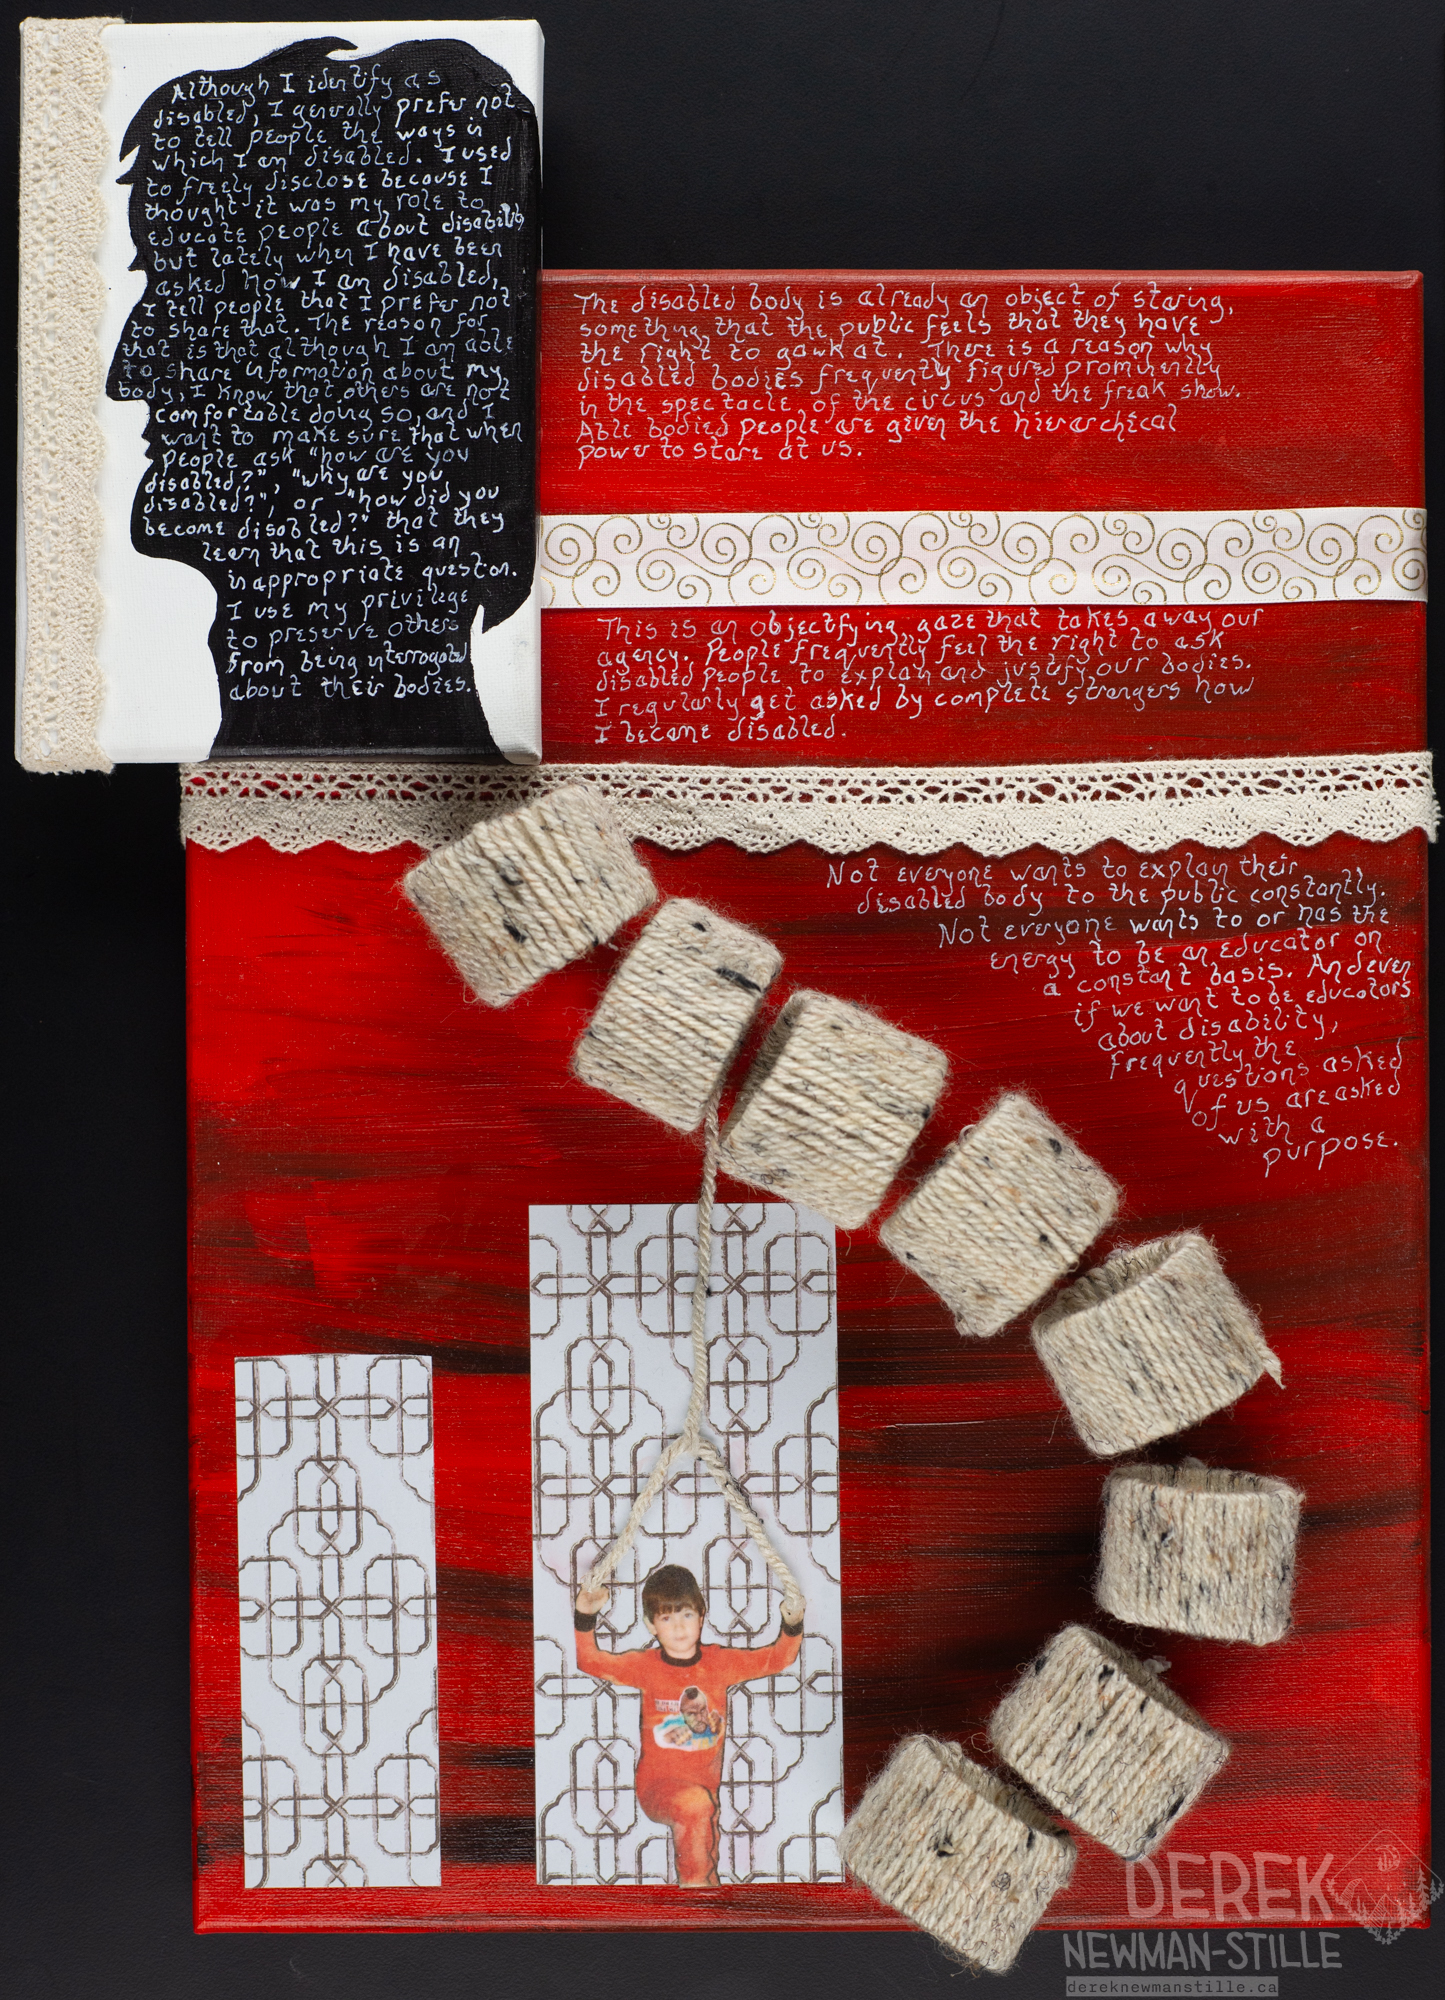 Although I identify as
disabled, I generally prefer not
to tell people the ways in
which I am disabled. I used
to freely disclose because I
thought it was my role to
educate people about disability
but lately when I have been
asked how I am disabled,
I tell people that I prefer not
to share that. The reason for
that is that although I am able
to share information about my
body, I know that others are not
comfortable doing so, and I
want to make sure that when
people ask "how are you
disabled?", "why are you
disabled?", or "how did you
become disabled?" that they
learn that this is an
inappropriate question.
I use my privilege
to preserve others
from being interrogated
about their bodies.
The disabled body is already an object of staring,
something that the public feels that they have
the right to gawk at. There is a reason why
disabled bodies frequently figured prominently
in the spectacle of the circus and the freak show.
Able bodied people are given the hierarchical
power to stare at us.
This is an objectfying gaze that takes away our
agency. People frequently feel the right to ask
disabled people to explain and justify our bodies.
I regularly get asked by complete strangers how
I became disabled.
Not everyone wants to explain their
disabled body to the public constantly.
Not everyone wants to or has the
energy to be an educator on
a constant basis. And even
if we want to be educators
about disability,
frequently the
questions asked
of us are asked
with a
purpose.
DEREK
NEWMAN-STILLE
dereknewmanstille.ca